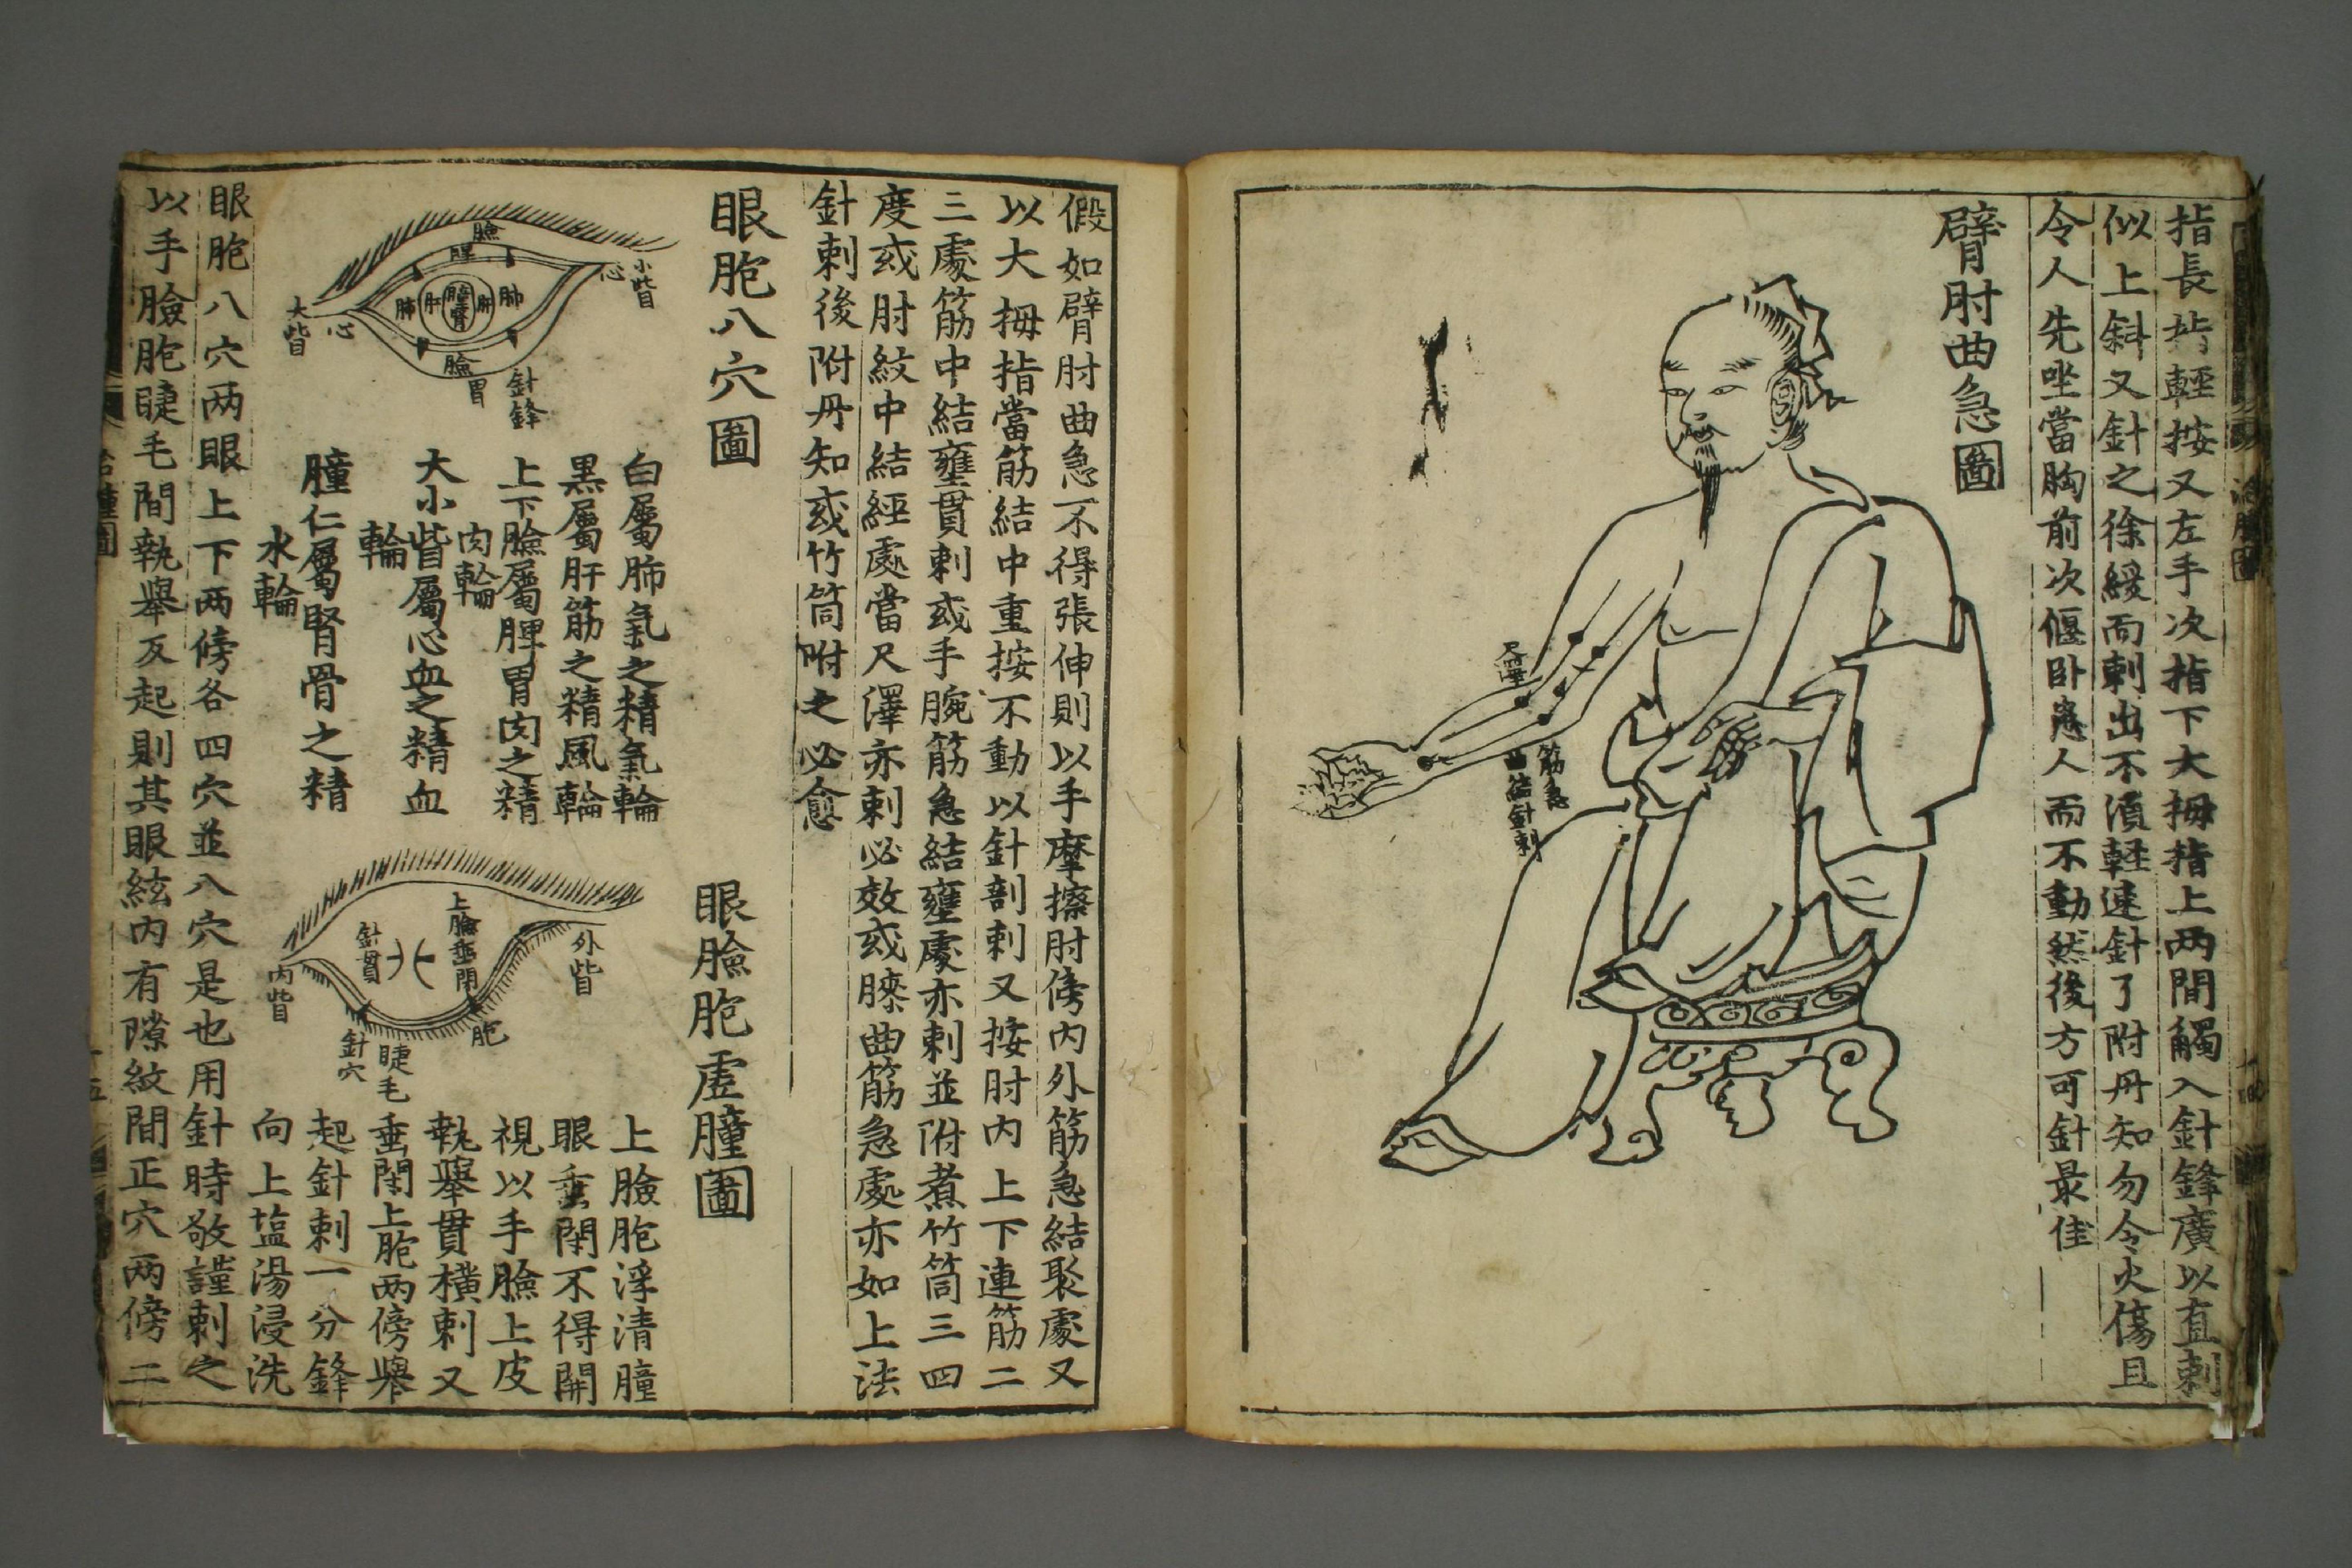 指長按輕按又左手次指下大拇指上两間觸入針鋒廣以直刺
似上斜又針之徐緩而刺出不湏軽速針了附丹知勿令火傷且
令人先坐當胸前次偃卧患人而不動然後方可針最佳
臂肘曲急圖
尺澤
筋急
曲結針刺
假如臂肘曲急不得張伸則以手摩擦肘傍内外筋急結聚處又
以大拇指當筋結中重按不動以針剖刺又按肘内上下連筋二
三處筋中結壅貫刺或手腕筋急結壅處亦刺並附煮竹筒三四
度或肘紋中結經處當尺澤亦刺必效或膝曲筋急處亦如上法
針刺後附丹知或竹筒附之必愈
眼胞八穴圖
小眥
心
臉
脾
肺
肝
瞳
腎
肝
肺
大眥
心
臉
胃
針鋒
白屬肺氣之精氣輪
黑屬肝筋之精風輪
上下臉屬脾胃肉之精
肉輪
大小眥屬心血之精血
輪
瞳仁屬腎骨之精
水輪
眼臉胞虛腫圖
上臉垂閉
針貫
外眥
内眥
胞
針穴
睫毛
上臉胞浮清腫
眼垂閉不得開
視以手臉上皮
執擧貫橫刺又
垂閉上胞两傍擧
起針刺一分鋒
向上塩湯浸洗
眼胞八穴两眼上下两傍各四穴並八穴是也用針時敬謹刺之
以手臉胞睫毛間執擧反起則其眼絃内有隙紋間正穴两傍二